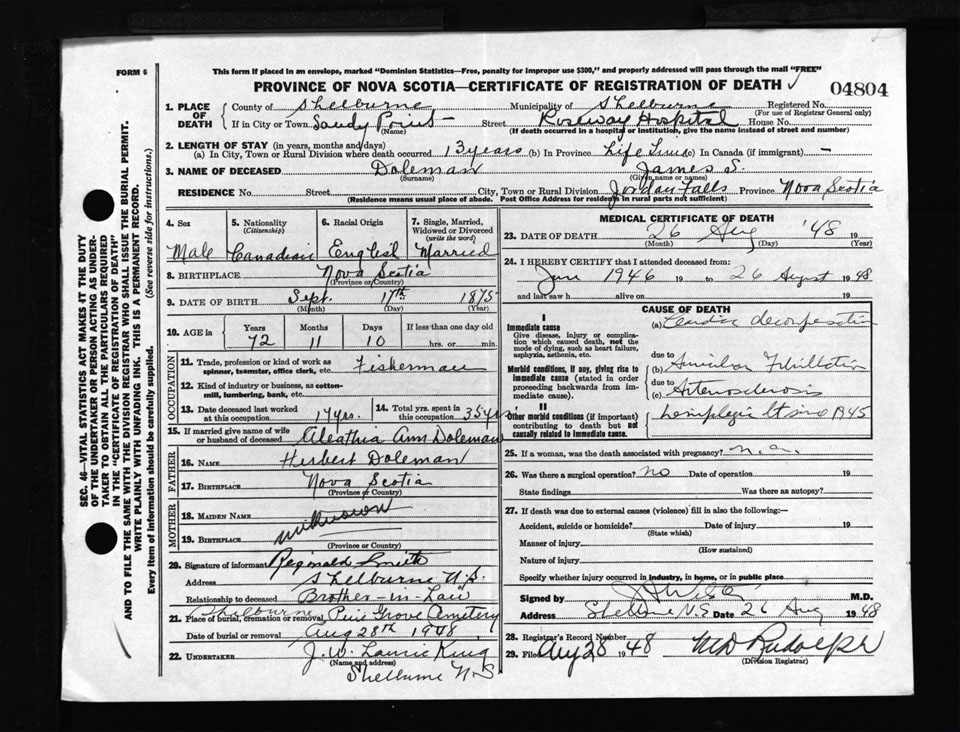 FORM 6
This form if placed in an envelope, marked "Dominion Statistics—Free, penalty for improper use $300," and properly addressed will pass through the mail "FREE"
PROVINCE OF NOVA SCOTIA—CERTIFICATE OF REGISTRATION OF DEATH
04804
1. PLACE OF DEATH County of Shelburne Municipality of Shelburne Registered No.
(For use of Registrar General only)
If in City or Town Sandy Point Street Roseway Hospital House No.
(Name) (If death occurred in a hospital or institution, give the name instead of street and number)
2. LENGTH OF STAY (in years, months and days)
(a) In City, Town or Rural Division where death occurred 13 years (b) In Province Life Time (c) In Canada (if immigrant) —
3. NAME OF DECEASED Doleman James S.
(Surname) (Given name or names)
RESIDENCE No. Street City, Town or Rural Division Jordan Falls Province Nova Scotia
(Residence means usual place of abode. Post Office Address for residents in rural parts not sufficient)
4. Sex 5. Nationality 6. Racial Origin 7. Single, Married,
(Citizenship) Widowed or Divorced
(write the word)
Male Canadian English Married
8. BIRTHPLACE Nova Scotia
(Province or Country)
9. DATE OF BIRTH Sept. 17th 1875
(Month) (Day) (Year)
10. AGE in Years Months Days If less than one day old
72 11 10 hrs. or min.
OCCUPATION
11. Trade, profession or kind of work as
spinner, teamster, office clerk, etc. Fisherman
12. Kind of industry or business, as cotton-
mill, lumbering, bank, etc.
13. Date deceased last worked
at this occupation 17 yrs. 14. Total yrs. spent in
this occupation 35 yrs
15. If married give name of wife
or husband of deceased Aleathia Ann Doleman
FATHER
16. NAME Herbert Doleman
17. BIRTHPLACE Nova Scotia
(Province or Country)
MOTHER
18. MAIDEN NAME unknown
19. BIRTHPLACE
(Province or Country)
20. Signature of informant Reginald Smith
Address Shelburne N.S.
Relationship to deceased Brother-in-Law
Shelburne
21. Place of burial, cremation or removal Pine Grove Cemetery
Date of burial or removal Aug 28th 1948
22. UNDERTAKER J. W. Lawrie King
(Name and address)
Shelburne N S
MEDICAL CERTIFICATE OF DEATH
23. DATE OF DEATH 26 Aug '48 19
(Month) (Day) (Year)
24. I HEREBY CERTIFY that I attended deceased from:
June 1946 19 to 26 August 1948
and last saw h alive on 19
I
Immediate cause
Give disease, injury or complication which caused death, not the mode of dying, such as heart failure, asphyxia, asthenia, etc.
Morbid conditions, if any, giving rise to immediate cause (stated in order proceeding backwards from immediate cause).
II
Other morbid conditions (if important) contributing to death but not causally related to immediate cause.
CAUSE OF DEATH
(a) Cardiac decompensation
due to
(b) Auricular Fibrillation
due to
(c) Arteriosclerosis
hemiplegia lt since 1945
25. If a woman, was the death associated with pregnancy? n.a.
26. Was there a surgical operation? no Date of operation 19
State findings Was there an autopsy?
27. If death was due to external causes (violence) fill in also the following:—
Accident, suicide or homicide? Date of injury 19
(State which)
Manner of injury
(How sustained)
Nature of injury
Specify whether injury occurred in industry, in home, or in public place
Signed by M.D.
Address Shelburne N.S Date 26 Aug 1948
28. Registrar's Record Number
29. Filed Aug 28 1948
(Division Registrar)
SEC. 46—VITAL STATISTICS ACT MAKES IT THE DUTY
OF THE UNDERTAKER OR PERSON ACTING AS UNDER-
TAKER TO OBTAIN ALL THE PARTICULARS REQUIRED
IN THE "CERTIFICATE OF REGISTRATION OF DEATH"
AND TO FILE THE SAME WITH THE DIVISION REGISTRAR WHO SHALL ISSUE THE BURIAL PERMIT.
WRITE PLAINLY WITH UNFADING INK. THIS IS A PERMANENT RECORD.
Every item of information should be carefully supplied. (See reverse side for instructions.)